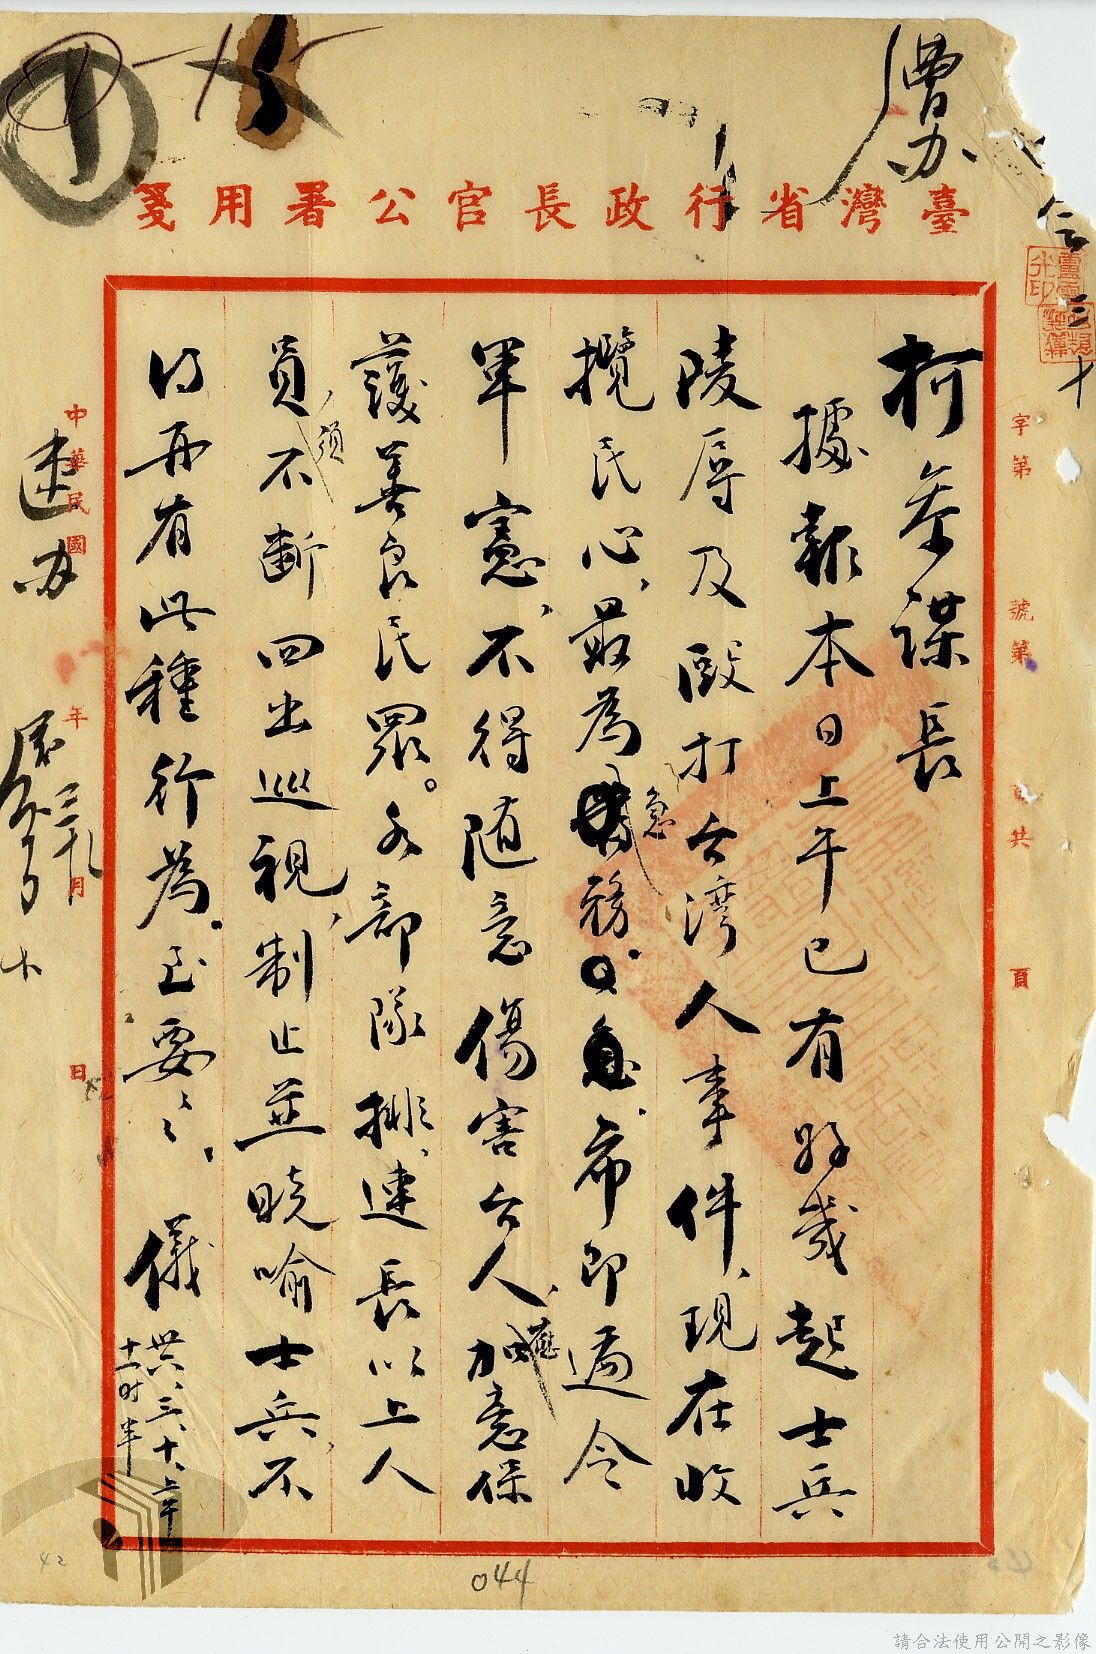 曹办
臺灣省行政長官公署用箋
字第
號第
共
頁
柯參謀長
據報本日上午已有好幾起士兵
陵辱及毆打台灣人事件、現在收
攬民心、最為急務。希即通令
軍憲、不得随意傷害台人、應加意保
護善良民眾。各部隊排、連長以上人
員、須不斷回出巡視、制止並曉喻士兵、不
得再有此種行為。至要々、儀
卅六、三、十、上午
十一时半
中華民國
年
月
日
速办
三、十
044
42
請合法使用公開之影像